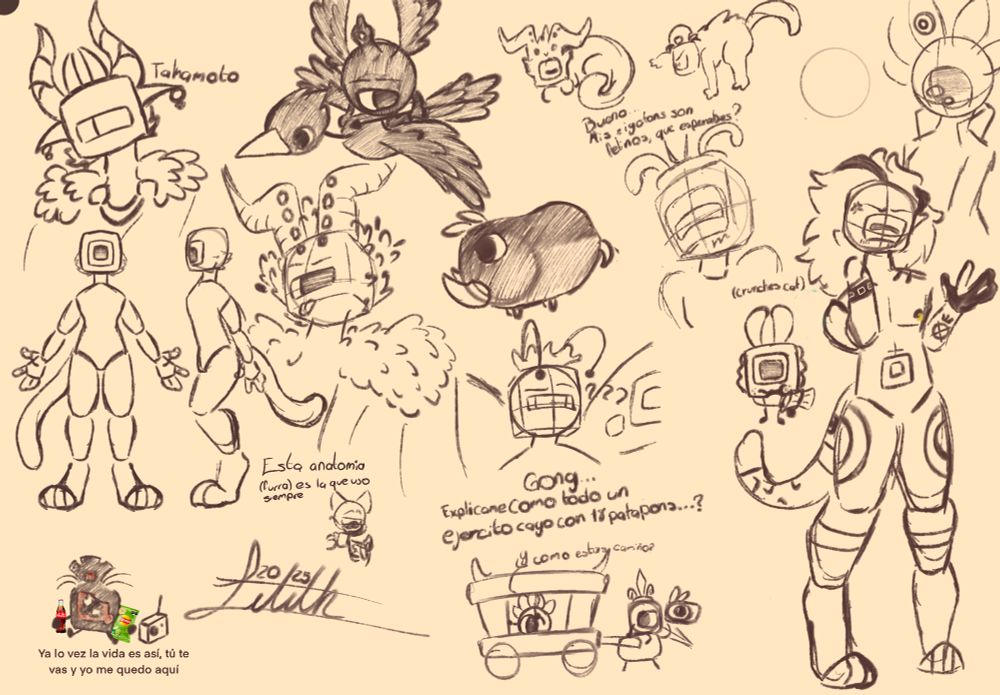 Takamoto
Bueno...
Mis zigotons son
felinos, que esperabas?
(crunches cat)
Esta anatomia
(furra) es la que uso
siempre
Gong...
Explicame como todo un
ejercito cayo con 18 patapons...?
¿Y como estas, camiño?
2025
Lilith
Ya lo vez la vida es así, tú te
vas y yo me quedo aquí